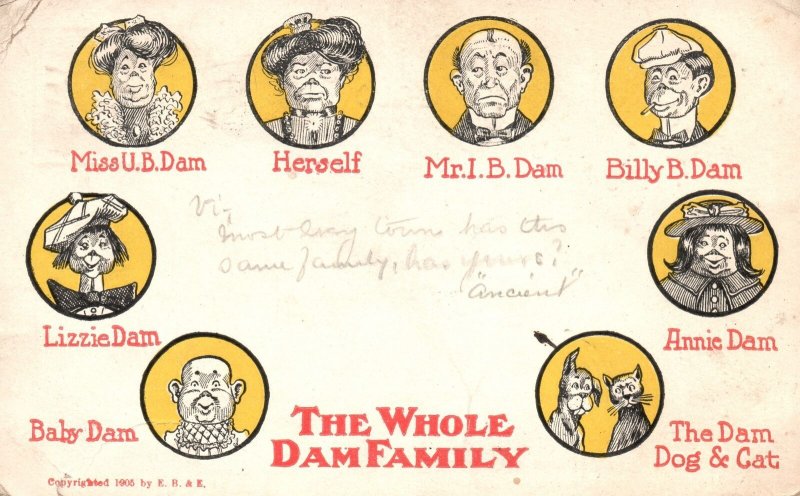 Miss U.B. Dam
Herself
Mr. I. B. Dam
Billy B. Dam
Vi,
Most every town has this
same family, has yours?
"Ancient"
Lizzie Dam
Annie Dam
Baby Dam
THE WHOLE
DAM FAMILY
The Dam
Dog & Cat
Copyrighted 1905 by E. B. & E.